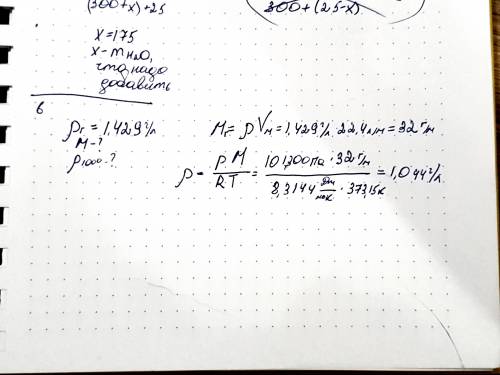 (300+x)+25
300+(25-x)
x=175
x-mH₂O,
что надо
добавить
6
ρг = 1,429 г/л
M-?
ρ100°-?
Mг= ρVм = 1,429 г/л · 22,4 л/м = 32 г/м
ρ = pM/RT = 101300 Па · 32 г/м / 8,3144 Дж/моК · 373,15К = 1,044 г/л